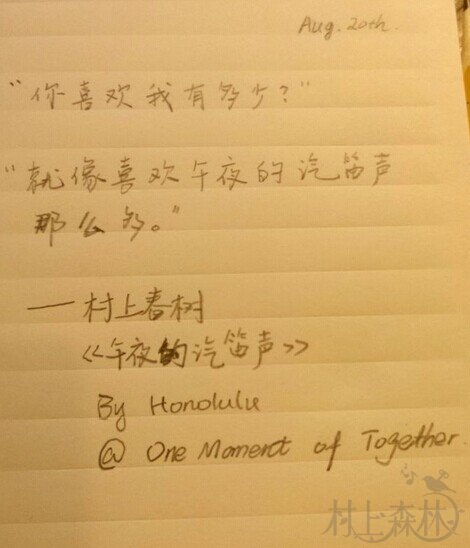 Aug. 20th.
“你喜欢我有多少？”
“就像喜欢午夜的汽笛声
那么多。”
——村上春树
《午夜的汽笛声》
By Honolulu
@ One Moment of Together.
村上森林